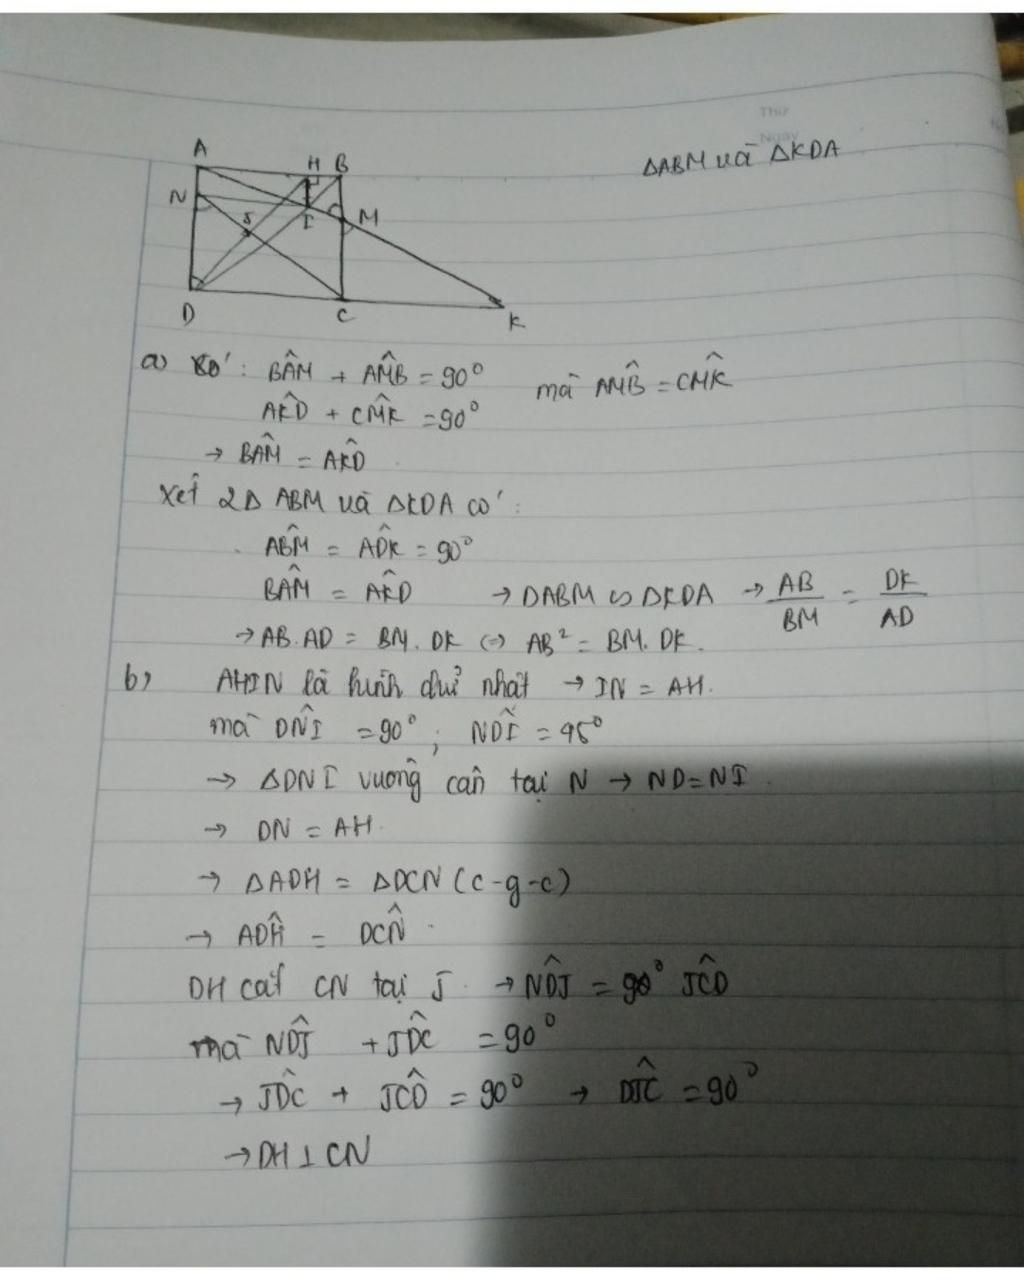 Thứ
Ngày
ΔABM và ΔKDA
A
H B
N
J
I
M
D
C
K
a) Có: BÂM + AM̂B = 90°
mà AM̂B = CM̂K
AK̂D + CM̂K = 90°
→ BÂM = AK̂D
Xét 2Δ ABM và ΔKDA có:
AB̂M = AD̂K = 90°
BÂM = AK̂D → DABM ∽ ΔKDA → AB/BM = DK/AD
→ AB.AD = BM.DK (=) AB² = BM.DK.
b, AHIN là hình chữ nhật → IN = AH.
mà DN̂I = 90°; ND̂I = 45°
→ ΔDNI vuông cân tại N → ND=NI
→ DN = AH.
→ ΔADH = ΔDCN (c-g-c)
→ AD̂H = DĈN.
DH cắt CN tại J. → ND̂J = JĈD
mà ND̂J + JD̂C = 90°
→ JD̂C + JĈD = 90° → DĴC = 90°
→ DH ⊥ CN